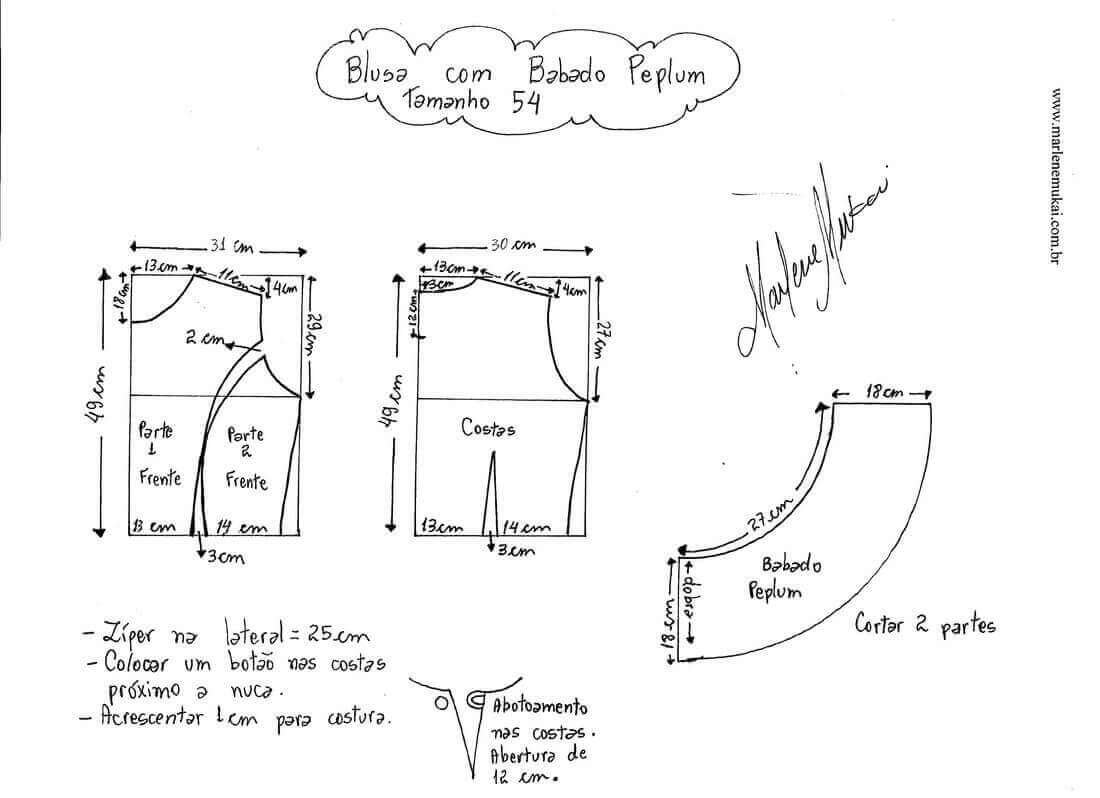 Blusa com Babado Peplum
Tamanho 54
www.marlenemukai.com.br
Marlene Mukai
31 cm
13cm
11cm
4cm
18cm
29cm
2 cm
49cm
Parte
1
Frente
Parte
2
Frente
13 cm
14 cm
3cm
30 cm
13cm
11cm
3cm
4cm
12cm
27cm
49cm
Costas
13cm
14cm
3cm
18cm
27cm
Babado
Peplum
dobra
18cm
Cortar 2 partes
- Zíper na lateral = 25cm
- Colocar um botão nas costas
próximo a nuca.
- Acrescentar 1cm para costura.
Abotoamento
nas costas.
Abertura de
12 cm.